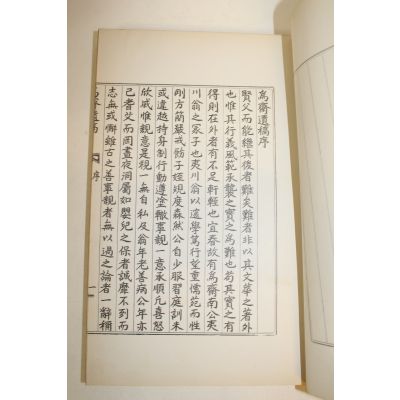 爲齋遺稿序
賢父而能繼其後者難矣難者非以其文華之著外
也惟其行義風範承襲之實之爲難也苟其實之有
得則在外者有不足輕輊也宜春故有爲齋南公夷
川翁之冢子也夷川翁以邃學篤行望重儒苑而性
剛方簡嚴戒飭子姪規度森然公自少服習庭訓未
或違越持身制行動遵塗轍事親一意承順凡喜怒
欣戚惟親意是視一無自私及翁年老善病公年亦
已耆艾而罔晝夜洞屬如嬰兒之保者誠靡不到而
志無或懈雖古之善事親者無以過之論者一辭稱
爲齋遺稿 序 一